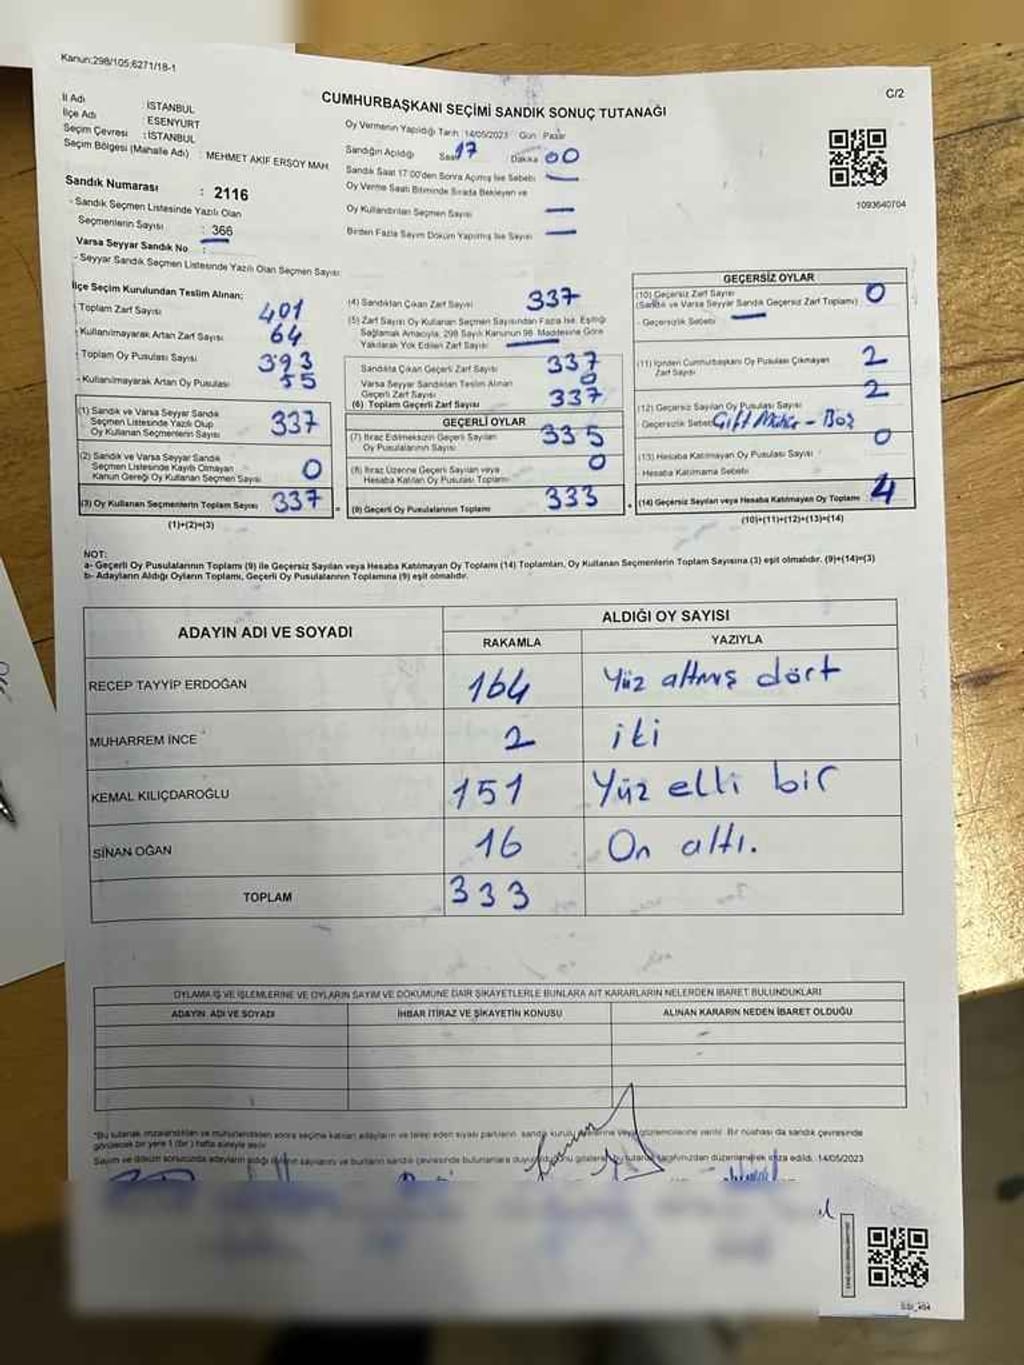 Kanun:298/105;6271/18-1
C/2
CUMHURBAŞKANI SEÇİMİ SANDIK SONUÇ TUTANAĞI
İl Adı : İSTANBUL
İlçe Adı : ESENYURT
Seçim Çevresi : İSTANBUL
Seçim Bölgesi (Mahalle Adı) : MEHMET AKİF ERSOY MAH
Sandık Numarası : 2116
- Sandık Seçmen Listesinde Yazılı Olan
Seçmenlerin Sayısı : 366
Varsa Seyyar Sandık No :
- Seyyar Sandık Seçmen Listesinde Yazılı Olan Seçmen Sayısı:
Oy Vermenin Yapıldığı Tarih: 14/05/2023 Gün: Pazar
Sandığın Açıldığı Saat 17 Dakika 00
Sandık Saat 17:00'den Sonra Açılmış İse Sebebi —
Oy Verme Saati Bitiminde Sırada Bekleyen ve
Oy Kullandırılan Seçmen Sayısı —
Birden Fazla Sayım Döküm Yapılmış İse Sayısı —
1093640704
İlçe Seçim Kurulundan Teslim Alınan;
- Toplam Zarf Sayısı 401
- Kullanılmayarak Artan Zarf Sayısı 64
- Toplam Oy Pusulası Sayısı 393
- Kullanılmayarak Artan Oy Pusulası 55
(1) Sandık ve Varsa Seyyar Sandık
Seçmen Listesinde Yazılı Olup
Oy Kullanan Seçmenlerin Sayısı 337
(2) Sandık ve Varsa Seyyar Sandık
Seçmen Listesinde Kayıtlı Olmayan
Kanun Gereği Oy Kullanan Seçmen Sayısı 0
(3) Oy Kullanan Seçmenlerin Toplam Sayısı 337
(1)+(2)=(3)
(4) Sandıktan Çıkan Zarf Sayısı 337
(5) Zarf Sayısı Oy Kullanan Seçmen Sayısından Fazla İse, Eşitliği
Sağlamak Amacıyla, 298 Sayılı Kanunun 98. Maddesine Göre
Yakılarak Yok Edilen Zarf Sayısı —
Sandıkta Çıkan Geçerli Zarf Sayısı 337
Varsa Seyyar Sandıktan Teslim Alınan
Geçerli Zarf Sayısı 0
(6) Toplam Geçerli Zarf Sayısı 337
GEÇERLİ OYLAR
(7) İtiraz Edilmeksizin Geçerli Sayılan
Oy Pusulasının Sayısı 335
(8) İtiraz Üzerine Geçerli Sayılan veya
Hesaba Katılan Oy Pusulası Toplamı 0
(9) Geçerli Oy Pusulalarının Toplamı 333
GEÇERSİZ OYLAR
(10) Geçersiz Zarf Sayısı
(Sandık ve Varsa Seyyar Sandık Geçersiz Zarf Toplamı) 0
- Geçersizlik Sebebi: —
(11) İçinden Cumhurbaşkanı Oy Pusulası Çıkmayan
Zarf Sayısı 2
(12) Geçersiz Sayılan Oy Pusulası Sayısı 2
Geçersizlik Sebebi Çift Mühür - Boş
(13) Hesaba Katılmayan Oy Pusulası Sayısı 0
- Hesaba Katılmama Sebebi
(14) Geçersiz Sayılan veya Hesaba Katılmayan Oy Toplamı 4
(10)+(11)+(12)+(13)=(14)
NOT:
a- Geçerli Oy Pusulalarının Toplamı (9) ile Geçersiz Sayılan veya Hesaba Katılmayan Oy Toplamı (14) Toplamları, Oy Kullanan Seçmenlerin Toplam Sayısına (3) eşit olmalıdır. (9)+(14)=(3)
b- Adayların Aldığı Oyların Toplamı, Geçerli Oy Pusulalarının Toplamına (9) eşit olmalıdır.
ADAYIN ADI VE SOYADI ALDIĞI OY SAYISI
RAKAMLA YAZIYLA
RECEP TAYYİP ERDOĞAN 164 Yüz altmış dört
MUHARREM İNCE 2 iki
KEMAL KILIÇDAROĞLU 151 Yüz elli bir
SİNAN OĞAN 16 On altı.
TOPLAM 333
OYLAMA İŞ VE İŞLEMLERİNE VE OYLARIN SAYIM VE DÖKÜMÜNE DAİR ŞİKAYETLERLE BUNLARA AİT KARARLARIN NELERDEN İBARET BULUNDUKLARI
ADAYIN ADI VE SOYADI İHBAR İTİRAZ VE ŞİKAYETİN KONUSU ALINAN KARARIN NEDEN İBARET OLDUĞU
*Bu tutanak imzalandıktan ve mühürlendikten sonra seçime katılan adayların ve talep eden siyasi partilerin, sandık kurulu üyelerine veya gözlemcilerine verilir. Bir nüshası da sandık çevresinde
görülecek bir yere 1 (bir) hafta süreyle asılır.
Sayım ve döküm sonucunda adayların aldığı oyların sayılarını ve bunların sandık çevresinde bulunanlara duyurulduğunu gösteren bu tutanak tarafımızdan düzenlenerek imza edildi. 14/05/2023